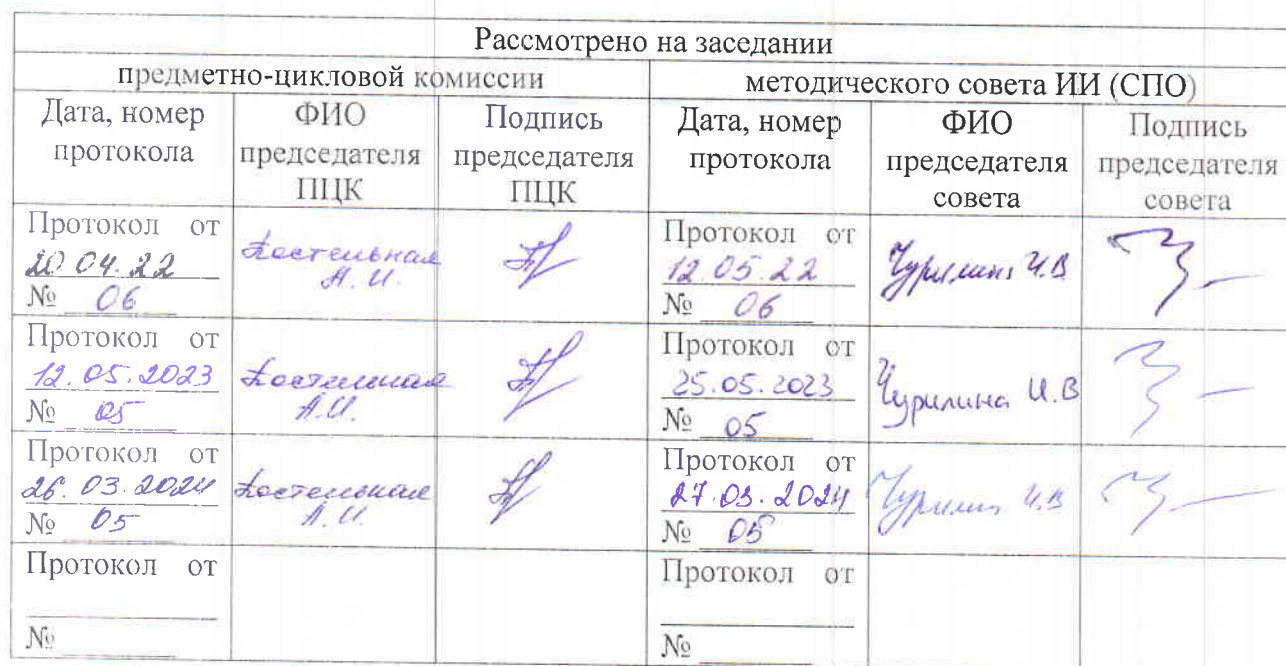 Рассмотрено на заседании
предметно-цикловой комиссии
методического совета ИИ (СПО)
Дата, номер протокола
ФИО председателя ПЦК
Подпись председателя ПЦК
Дата, номер протокола
ФИО председателя совета
Подпись председателя совета
Протокол от
20.04.22
№ 06
А.И.
Протокол от
12.05.22
№ 06
Чурилина И.В
Протокол от
12.05.2023
№ 05
А.И.
Протокол от
25.05.2023
№ 05
Чурилина И.В
Протокол от
26.03.2024
№ 05
А.И.
Протокол от
27.03.2024
№ 05
Чурилина И.В
Протокол от
№
Протокол от
№